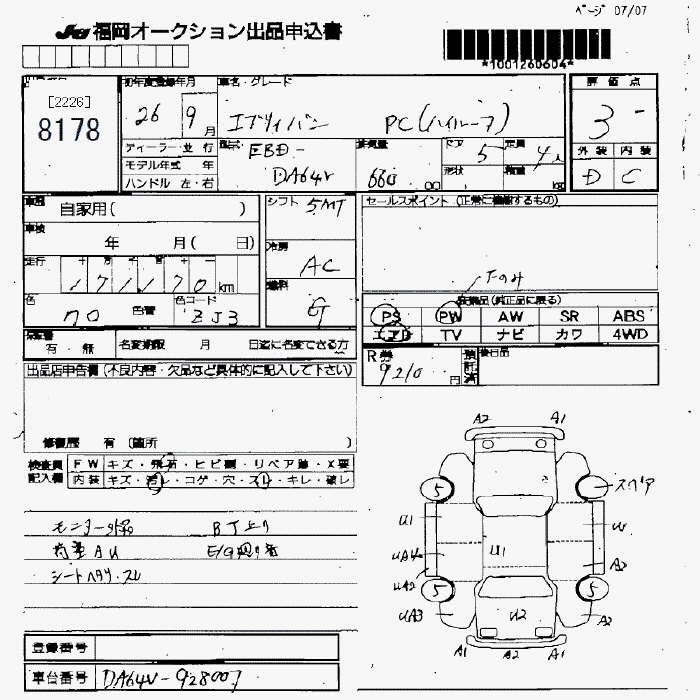 ページ 07/07
JU 福岡オークション出品申込書
*1001260604*
[2226]
8178
初年度登録年月
26 9月
車名・グレード
エブリィバン PC(ハイルーフ)
評価点
3-
外装 内装
D C
ディーラー・並行
モデル年式 年
ハンドル 左・右
型式 EBD-
DA64V
排気量
660 cc
ドア 5
定員 4人
形状
積載 kg
車歴 自家用( )
車検 年 月( 日)
走行 十 万 千 百 十
171170 km
色 色替
色コード
ZJ3
シフト 5MT
冷房
AC
燃料
G
セールスポイント (正常に機能するもの)
装備品(純正品に限る)
PS PW AW SR ABS
エアB TV ナビ カワ 4WD
保証書
有・無
名変期限 月 日迄に名変できる方
R券
9210円
預託済
後日品
出品店申告欄 (不良内容・欠品など具体的に記入して下さい)
修復歴 有 (箇所 )
検査員
記入欄
FW キズ・飛石・ヒビ割・リペア跡・X要
内装 キズ・汚レ・コゲ・穴・スレ・キレ・破レ
シートヘタリ・スレ
A2 A1
5 スペア
U1 U1 W
UA4 A2
UA2
5 5
UA3 U2 A2
A1 A2 A1
登録番号
車台番号 DA64V-928007